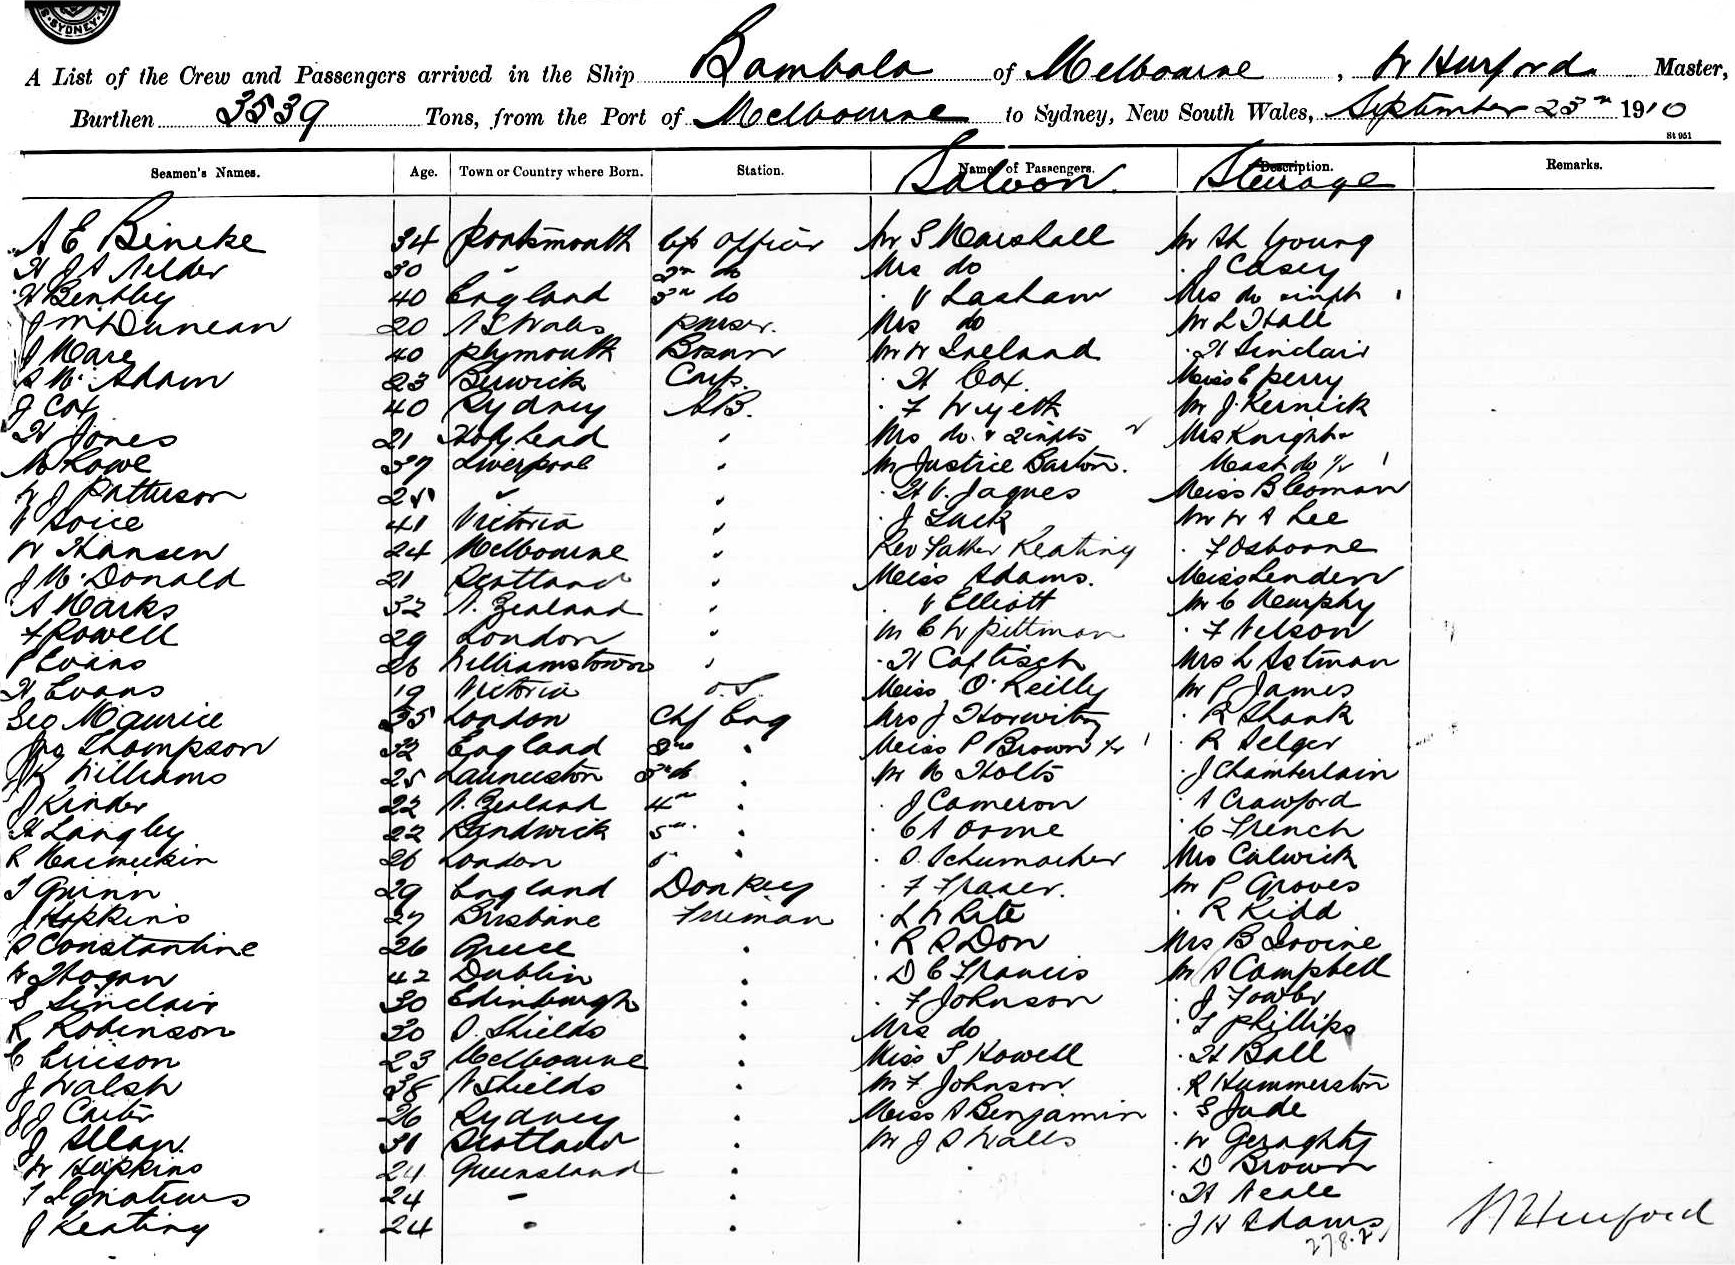 SYDNEY
A List of the Crew and Passengers arrived in the Ship Bombala of Melbourne, W Hurford Master,
Burthen 3539 Tons, from the Port of Melbourne to Sydney, New South Wales, September 23rd 1910
St 951
Seamen's Names. Age. Town or Country where Born. Station. Names of Passengers. Saloon Description. Steerage Remarks.
A E Bincke 34 Portsmouth Cf Officer Mr S Marshall Mr Young
30 " 2nd do Mrs do J Casey
H Bentley 40 England 3rd do V Lasham Mrs do infpt
J McDuncan 20 N S Wales Purser. Mrs do Mr L Hall
J Mare 40 Plymouth Bosun Mr W Ireland H Sinclair
A Mc Adam 23 Berwick Carp. H Cox Miss E Perry
J Cox 40 Sydney A B. F Wyeth Mr J. Kernick
H Jones 21 Holyhead " Mrs do. & 2 infts Mrs Knight
M Lowe 37 Liverpool " Mr Justice Barton. Mast do
W J Patterson 25 " " H V. Jaques Miss B
V 41 Victoria " J Luck Mr W A Lee
W Hansen 24 Melbourne " Rev Father Keating F Osborne
J Mc Donald 21 Scotland " Miss Adams. Miss Linden
A Marks 32 N. Zealand " V Elliott Mr C
F Powell 29 London " Mr C W Pittman F Nelson
P Evans 26 Williamstown " H Caftisch Mrs L
H Evans 19 Victoria O.S. Miss O'Reilly Mr P James
Geo Maurice 35 London Chf Eng Mrs J Horwitz R Shank
Jno Thompson 32 England 2nd " Miss P Brown R Selger
J K Williams 25 Launceston 3rd do " Mr N Holts J Chamberlain
J Kinder 22 N. Zealand 4th " J Cameron A Crawford
H Langley 22 Randwick 5th " C A Orme C French
R 26 London 6th " O. Schumacher Mrs Calwick
T Quinn 29 England Donkey F Fraser. Mr P Groves
J Hopkins 27 Brisbane Fireman L White R Kidd
A Constantine 26 Greece " R S Don Mrs B Irvine
W Hogan 42 Dublin " D C Francis Mr A Campbell
S Sinclair 30 Edinburgh " F Johnson J Fowler
R Robinson 30 S. Shields " Mrs do T Phillips
C 23 Melbourne " Miss S Howell H Ball
J Walsh 38 N Shields " Mr F Johnson R Hummerston
J J Carter 26 Sydney " Miss A Benjamin S Jude
J Allan 31 Scotland " Mr J S Walls W Geraghty
W Hopkins 24 Queensland " D Brown
T Ignatius 24 " " H Neale
J Keating 24 " " J H Adams W Hurford
278.2